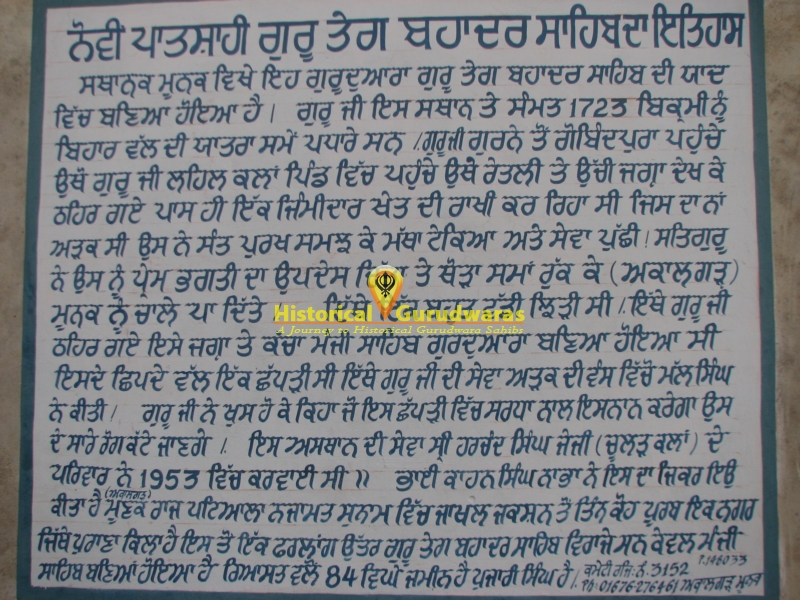 ਨੋਵੀ ਪਾਤਸ਼ਾਹੀ ਗੁਰੂ ਤੇਗ ਬਹਾਦਰ ਸਾਹਿਬ ਦਾ ਇਤਿਹਾਸ
ਸਥਾਨਕ ਮੂਨਕ ਵਿਖੇ ਇਹ ਗੁਰੂਦੁਆਰਾ ਗੁਰੂ ਤੇਗ ਬਹਾਦਰ ਸਾਹਿਬ ਦੀ ਯਾਦ
ਵਿੱਚ ਬਣਿਆ ਹੋਇਆ ਹੈ। ਗੁਰੂ ਜੀ ਇਸ ਸਥਾਨ ਤੇ ਸੰਮਤ 1723 ਬਿਕ੍ਰਮੀ ਨੂੰ
ਬਿਹਾਰ ਵੱਲ ਦੀ ਯਾਤਰਾ ਸਮੇਂ ਪਧਾਰੇ ਸਨ। ਗੁਰੂ ਜੀ ਗੁਰਨੇ ਤੋਂ ਗੋਬਿੰਦਪੁਰਾ ਪਹੁੰਚੇ
ਉਥੋਂ ਗੁਰੂ ਜੀ ਲਹਿਲ ਕਲਾਂ ਪਿੰਡ ਵਿੱਚ ਪਹੁੰਚੇ ਉਥੇ ਰੇਤਲੀ ਤੇ ਉੱਚੀ ਜਗ੍ਹਾ ਦੇਖ ਕੇ
ਠਹਿਰ ਗਏ ਪਾਸ ਹੀ ਇੱਕ ਜਿੰਮੀਦਾਰ ਖੇਤ ਦੀ ਰਾਖੀ ਕਰ ਰਿਹਾ ਸੀ ਜਿਸ ਦਾ ਨਾਂ
ਅੜਕ ਸੀ ਉਸ ਨੇ ਸੰਤ ਪੁਰਖ ਸਮਝ ਕੇ ਮੱਥਾ ਟੇਕਿਆ ਅਤੇ ਸੇਵਾ ਪੁੱਛੀ। ਸਤਿਗੁਰੂ
ਨੇ ਉਸ ਨੂੰ ਪ੍ਰੇਮ ਭਗਤੀ ਦਾ ਉਪਦੇਸ ਤੇ ਥੋੜਾ ਸਮਾਂ ਰੁੱਕ ਕੇ (ਅਕਾਲਗੜ੍ਹ)
ਮੂਨਕ ਨੂੰ ਚਾਲੇ ਪਾ ਦਿੱਤੇ ਝਿੜੀ ਸੀ। ਇੱਥੇ ਗੁਰੂ ਜੀ
Historical Gurudwaras
A Journey to Historical Gurudwara Sahibs
ਠਹਿਰ ਗਏ ਇਸੇ ਜਗ੍ਹਾ ਤੇ ਕੱਚਾ ਮੰਜੀ ਸਾਹਿਬ ਗੁਰਦੁਆਰਾ ਬਣਿਆ ਹੋਇਆ ਸੀ
ਇਸਦੇ ਛਿਪਦੇ ਵੱਲ ਇੱਕ ਛੱਪੜੀ ਸੀ ਇੱਥੇ ਗੁਰੂ ਜੀ ਦੀ ਸੇਵਾ ਅੜਕ ਦੀ ਵੰਸ ਵਿੱਚੋਂ ਮੱਲ ਸਿੰਘ
ਨੇ ਕੀਤੀ। ਗੁਰੂ ਜੀ ਨੇ ਖੁਸ ਹੋ ਕੇ ਕਿਹਾ ਜੋ ਇਸ ਛੱਪੜੀ ਵਿੱਚ ਸਰਧਾ ਨਾਲ ਇਸਨਾਨ ਕਰੇਗਾ ਉਸ
ਦੇ ਸਾਰੇ ਰੋਗ ਕੱਟੇ ਜਾਣਗੇ। ਇਸ ਅਸਥਾਨ ਦੀ ਸੇਵਾ ਸ੍ਰੀ ਹਰਚੰਦ ਸਿੰਘ ਜੇਜੀ (ਚੂਲੜ ਕਲਾਂ) ਦੇ
ਪਰਿਵਾਰ ਨੇ 1953 ਵਿੱਚ ਕਰਵਾਈ ਸੀ॥ ਭਾਈ ਕਾਹਨ ਸਿੰਘ ਨਾਭਾ ਨੇ ਇਸ ਦਾ ਜਿਕਰ ਇਉਂ
ਕੀਤਾ ਹੈ (ਅਕਾਲਗੜ) ਮੂਣਕ ਰਾਜ ਪਟਿਆਲਾ ਨਜਾਮਤ ਸੁਨਾਮ ਵਿੱਚ ਜਾਖਲ ਜਕਸ਼ਨ ਤੋਂ ਤਿੰਨ ਕੋਹ ਪੂਰਬ ਇਕ ਨਗਰ
ਜਿੱਥੇ ਪੁਰਾਣਾ ਕਿਲਾ ਹੈ ਇਸ ਤੋਂ ਇੱਕ ਫਰਲਾਂਗ ਉੱਤਰ ਗੁਰੂ ਤੇਗ ਬਹਾਦਰ ਸਾਹਿਬ ਵਿਰਾਜੇ ਸਨ ਕੇਵਲ ਮੰਜੀ
ਸਾਹਿਬ ਬਣਿਆਂ ਹੋਇਆ ਹੈ ਰਿਆਸਤ ਵੱਲੋਂ 84 ਵਿਘੇ ਜਮੀਨ ਹੈ ਪੁਜਾਰੀ ਸਿੰਘ ਹੈ। ਕਮੇਟੀ ਰਜਿ: ਨੰ. 3152
ਅਕਾਲਗੜ ਮੂਨਕ